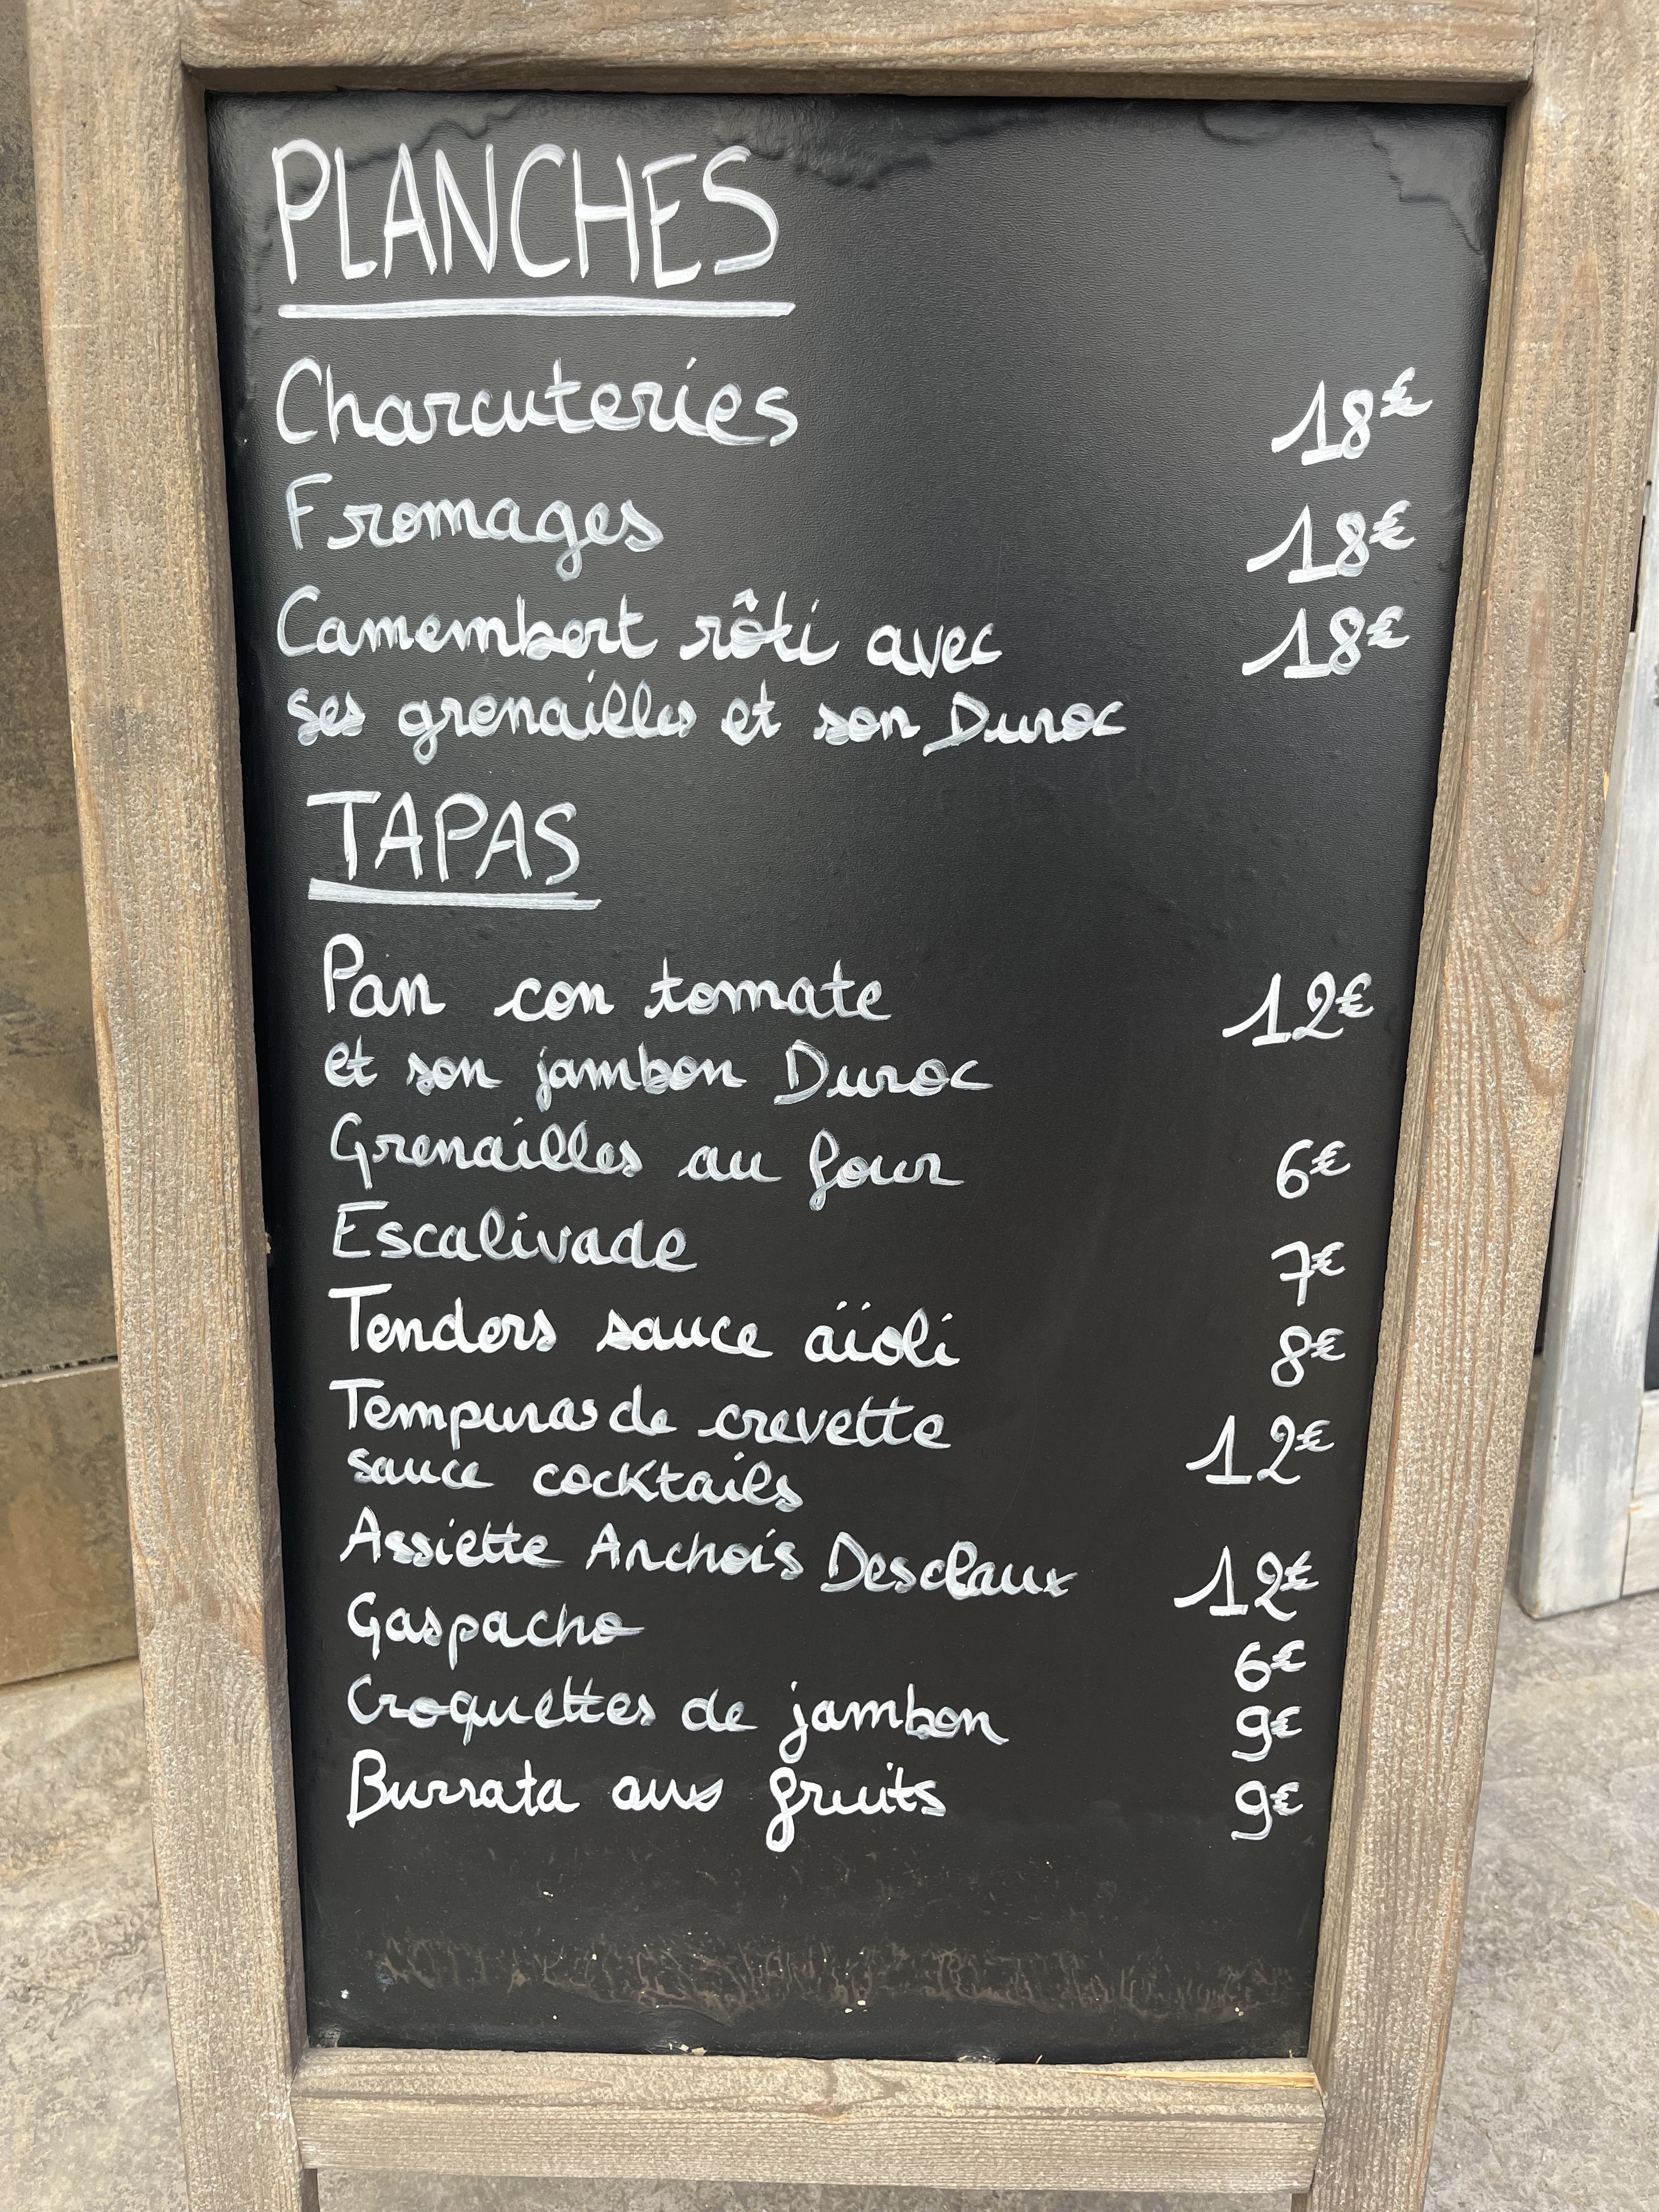 PLANCHES
Charcuteries 18€
Fromages 18€
Camembert rôti avec 18€
ses grenailles et son Duroc
TAPAS
Pan con tomate 12€
et son jambon Duroc
Grenailles au four 6€
Escalivade 7€
Tenders sauce aïoli 8€
Tempuras de crevette 12€
sauce cocktails
Assiette Anchois Desclaux 12€
Gaspacho 6€
Croquettes de jambon 9€
Burrata aux fruits 9€